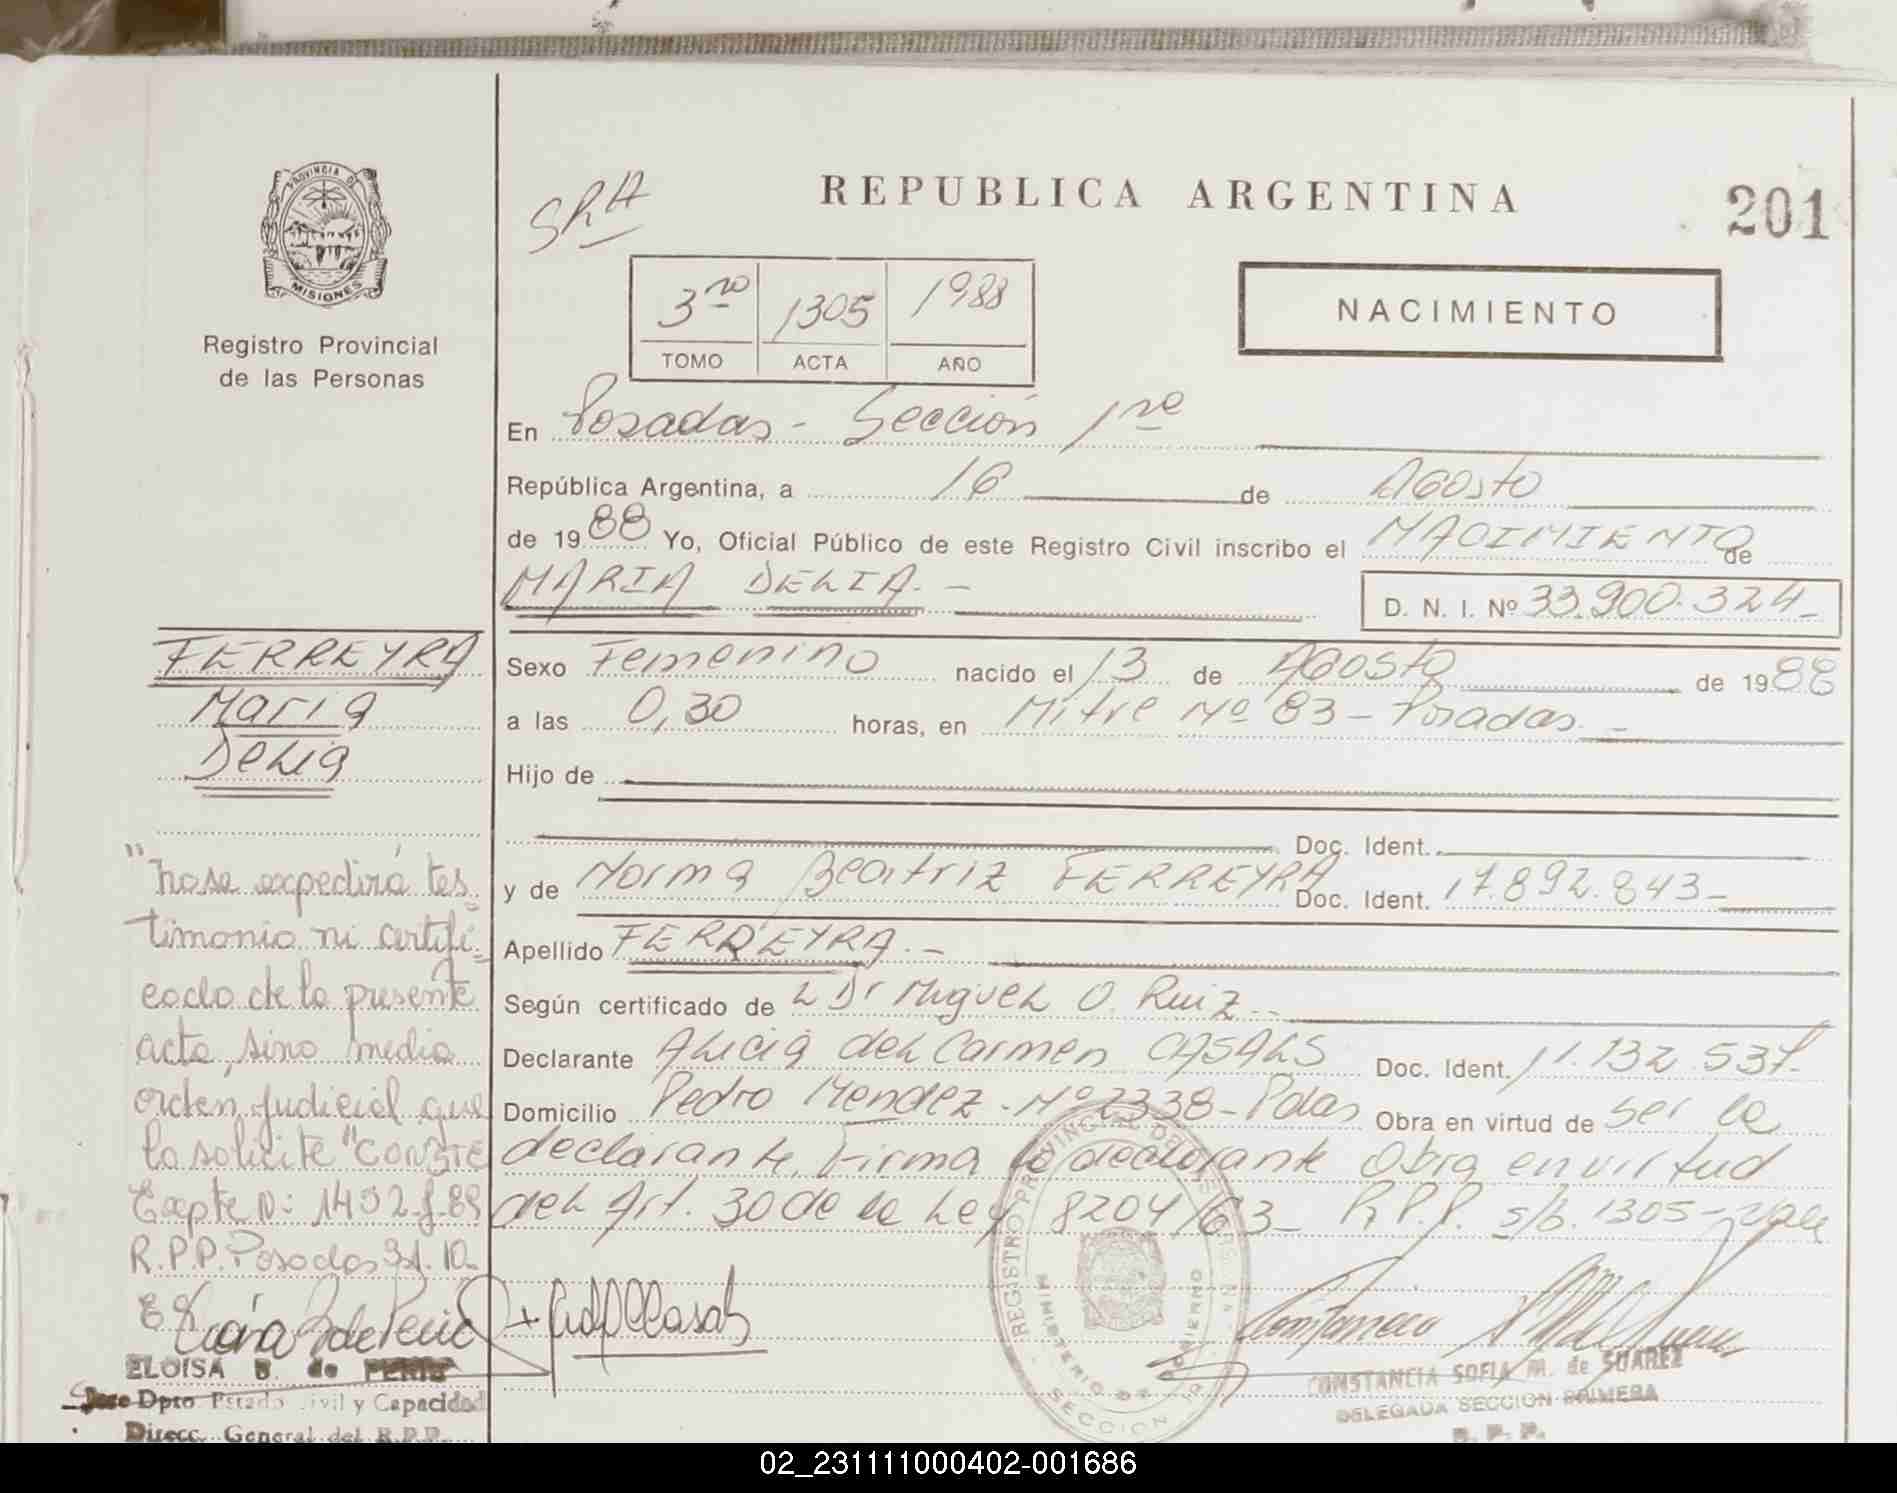 PROVINCIA DE
MISIONES
Registro Provincial
de las Personas
SRA
REPUBLICA ARGENTINA
201
3ro 1305 1988
TOMO ACTA AÑO
NACIMIENTO
En Posadas - Sección 1ra
República Argentina, a 16 de Agosto
de 1988 Yo, Oficial Público de este Registro Civil inscribo el NACIMIENTO de
MARIA DELIA.- D. N. I. Nº 33.900.324-
Sexo Femenino nacido el 13 de Agosto de 1988
a las 0,30 horas, en Mitre Nº 83 - Posadas.-
Hijo de
Doc. Ident.
y de Norma Beatriz FERREYRA Doc. Ident. 17.892.843-
Apellido FERREYRA.-
Según certificado de L Dr Miguel O. Ruiz.-
Declarante Alicia del Carmen CASALS Doc. Ident. 11.132.537-
Domicilio Pedro Mendez - Nº 2338 - Pdas Obra en virtud de ser la
declarante. Firma la declarante Obra en virtud
del Art. 30 de la Ley 8204/63- R.P.P. s/b. 1305 - vale
FERREYRA
Maria
Delia
"no se expedirá tes
timonio ni certifi
cado de la presente
acta, sino media
orden judicial que
lo solicite" CONSTE
Expte N: 1492-f-89
R.P.P. Posadas 10
ELOISA B. de
Dpto. Estado Civil y Capacidad
Direcc. General del R.P.P.
REGISTRO PROVINCIAL DE LAS PERSONAS
MINISTERIO DE GOBIERNO
SECCION 1a
CONSTANCIA SOFIA M. de SUAREZ
DELEGADA SECCION PRIMERA
R. P. P.
02_231111000402-001686